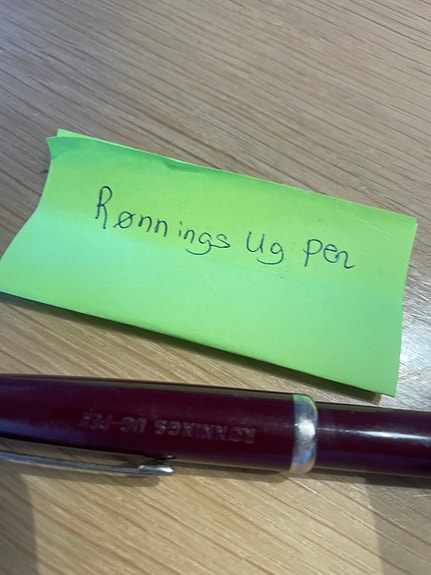 Rønnings Ug Per
RØNNINGS UG-PER